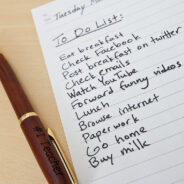 Tuesday
To Do List:
Eat breakfast
Check Facebook
Post breakfast on twitter
Check emails
Watch YouTube
Forward funny videos
Lunch
Browse internet
Paperwork
Go home
Buy milk
#1 Teacher